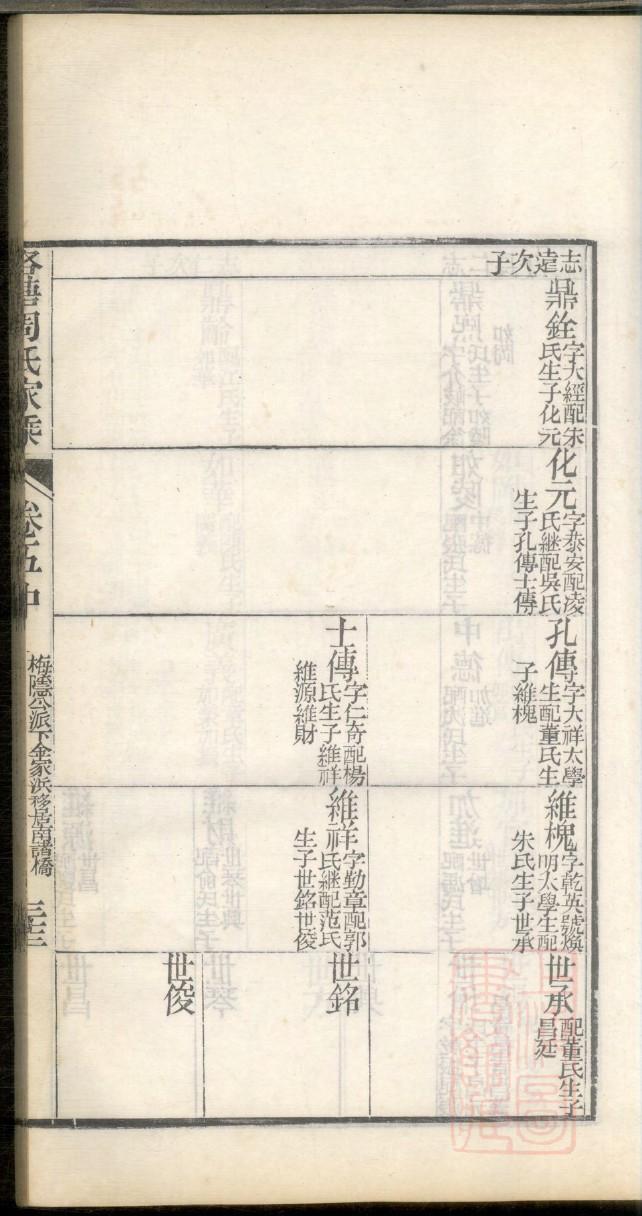 志達次子
鼎銓
字大經配朱
氏生子化元
化元
字泰安配凌
氏繼配吳氏
生子孔傳士傳
孔傳
字大祥太學
生配董氏生
子維槐
士傳
字仁奇配楊
氏生子維祥
維源維財
維槐
字乾英號煥
明太學生配
朱氏生子世承
維祥
字勤章配郭
氏繼配范氏
生子世銘世俊
世承
配董氏生子
昌廷
世銘
世俊
周氏家乘
卷五中
梅隱公派下金家浜移居南諸橋
三三